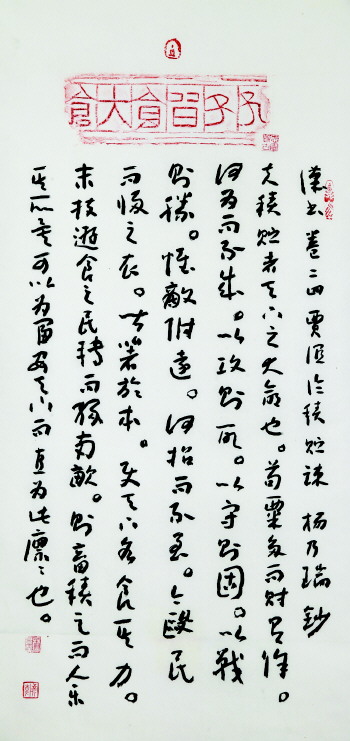 漢书卷二四賈誼论積貯疏 杨乃瑞鈔
夫積貯者天下之大命也。苟粟多而財有餘。
何为而不成。以攻則取。以守則固。以戰
則勝。懷敵附遠。何招而不至。今毆民
而歸之农。皆著於本。使天下各食其力。
末技遊食之民轉而緣南畝。則畜積足而人樂
其所矣可以为富安天下而直为此廩〻也。